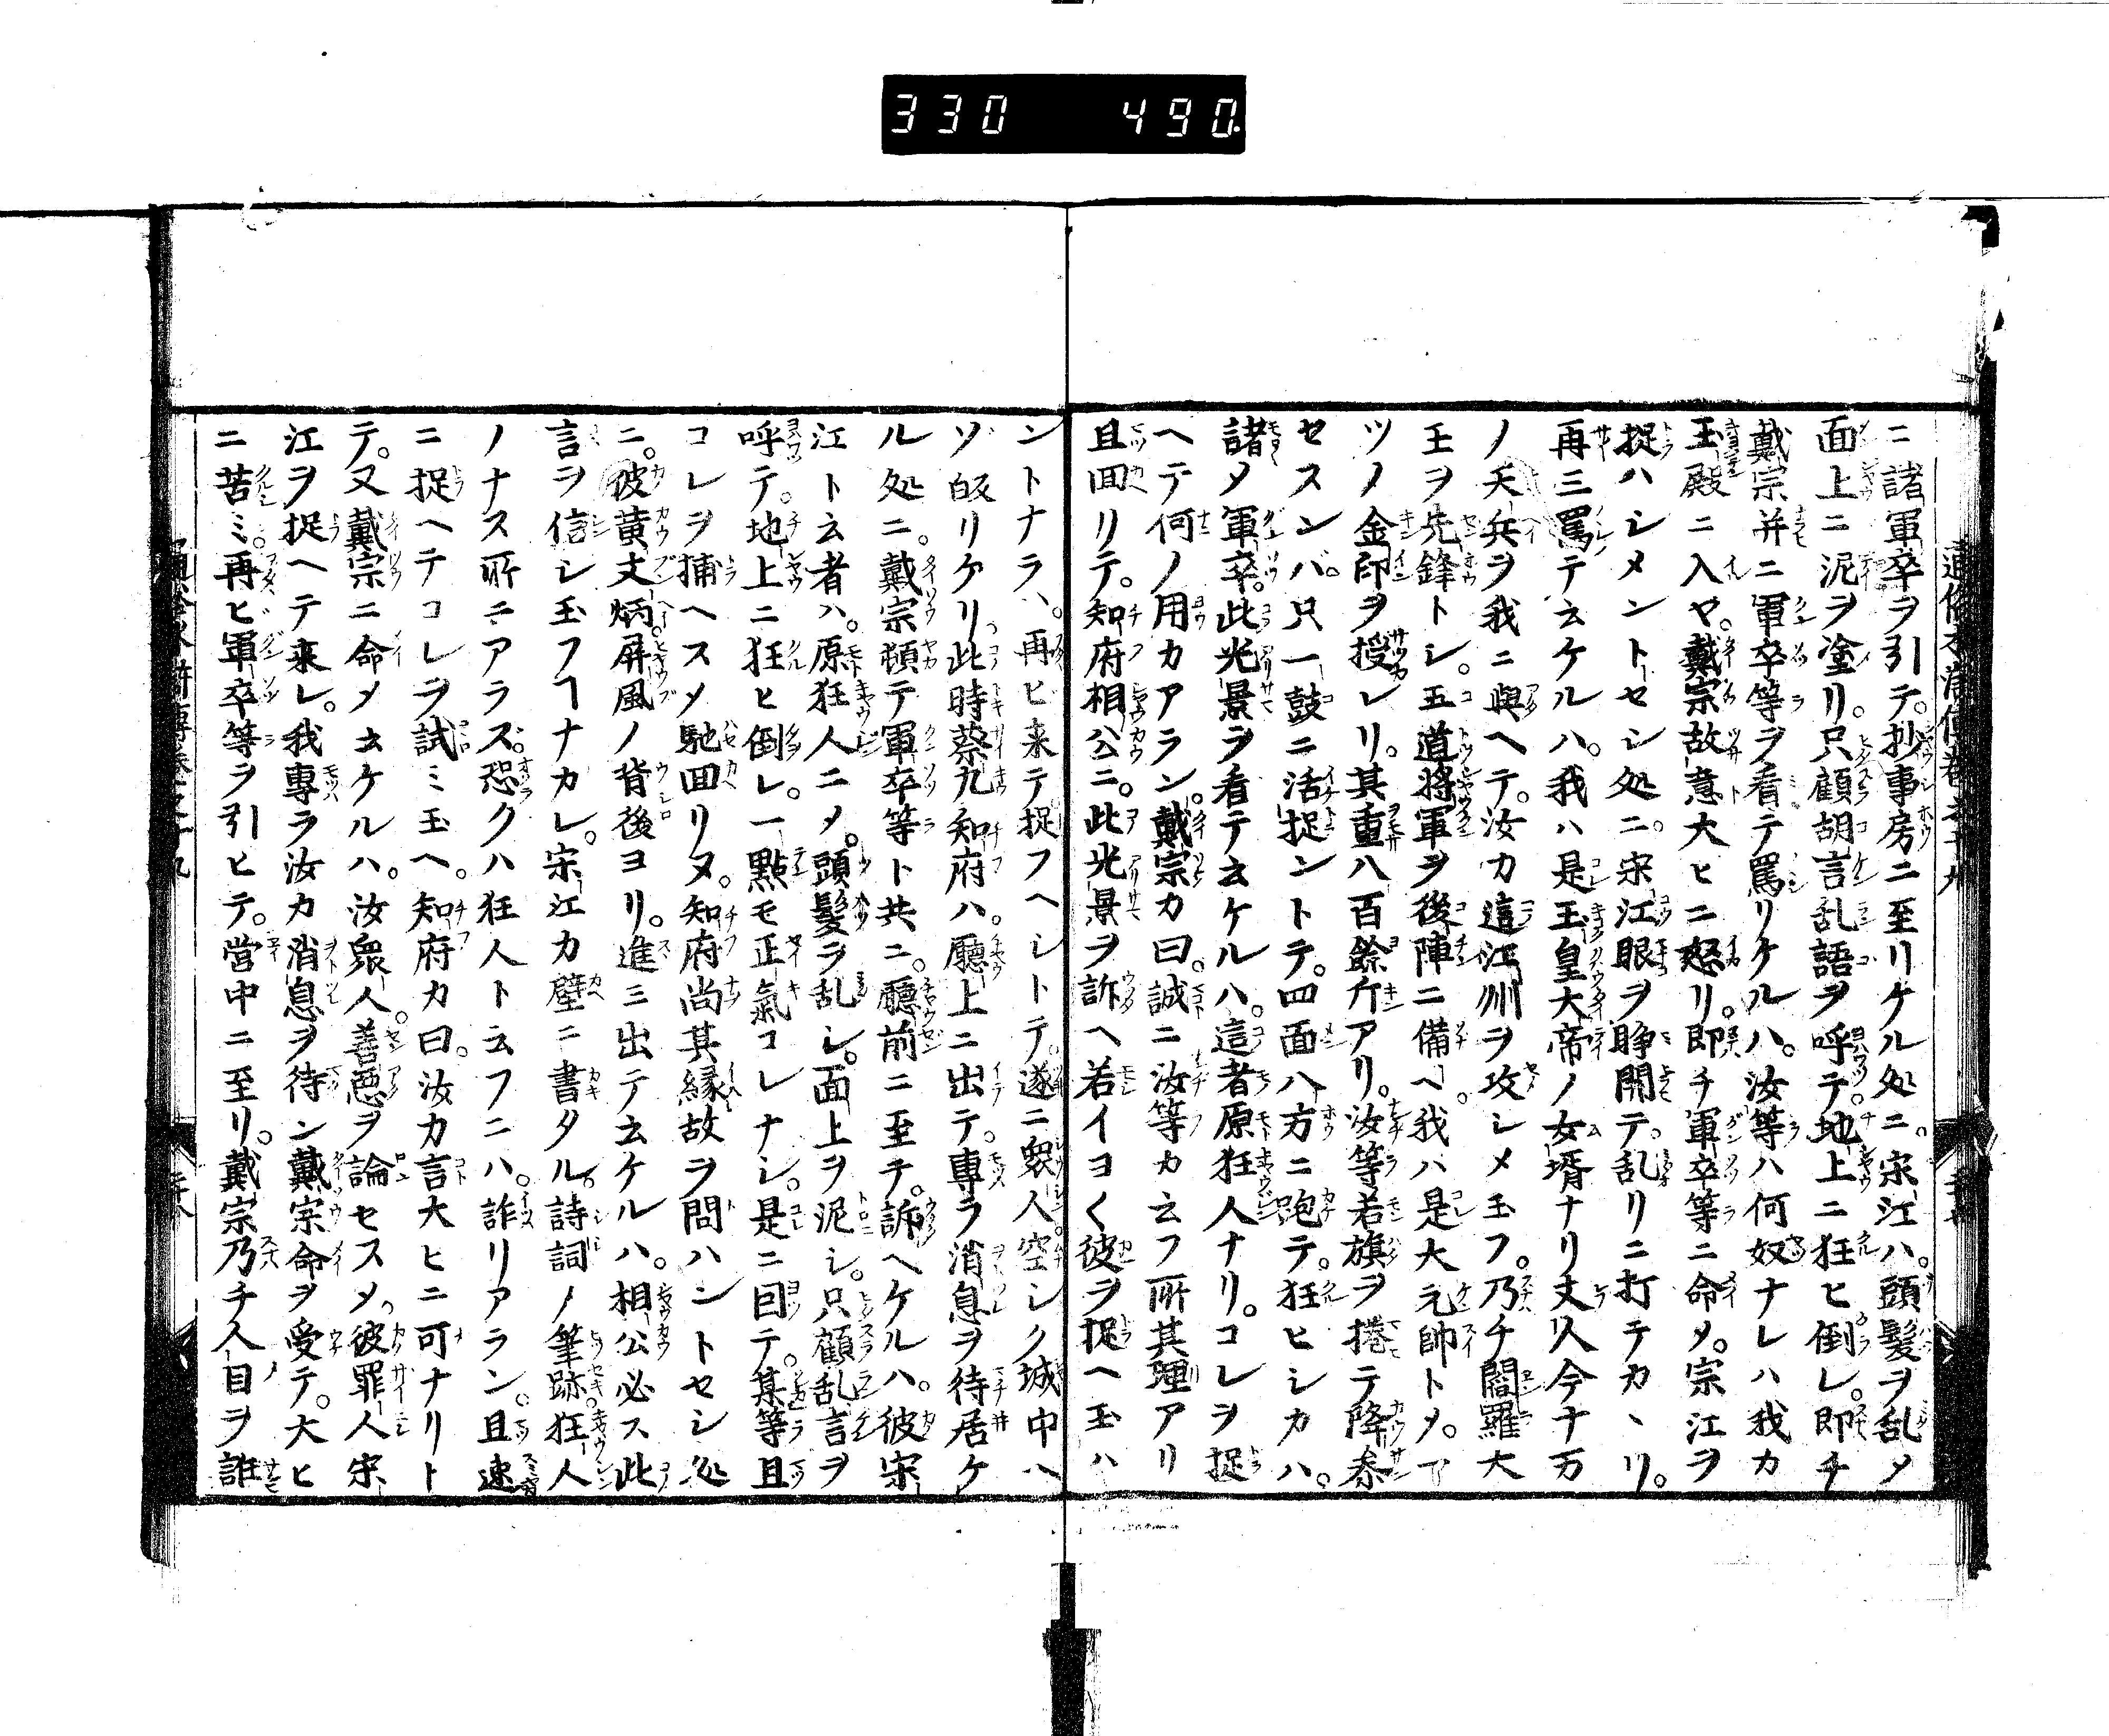 330 490
ニ諸軍卒ヲ引テ。抄事房ニ至リケル処ニ。宋江ハ。頭髮ヲ乱メ
面上ニ泥ヲ塗リ。只顧胡言乱語ヲ呼テ。地上ニ狂ヒ倒レ。即チ
戴宗并ニ軍卒等ヲ看テ罵リケルハ。汝等ハ何奴ナレハ我カ
玉殿ニ入ヤ。戴宗故意大ヒニ怒リ。即チ軍卒等ニ命メ。宗江ヲ
捉ハシメントセシ処ニ。宋江眼ヲ睁開テ。乱リニ打テカヽリ。
再三罵テ云ケルハ。我ハ是玉皇大帝ノ女壻ナリ丈人今十万
ノ天兵ヲ我ニ與ヘテ。汝カ這江州ヲ攻シメ玉フ。乃チ閻羅大
王ヲ先鋒トシ。五道将軍ヲ後陣ニ備ヘ。我ハ是大元帥トメ。一
ツノ金印ヲ授レリ。其重八百餘斤アリ。汝等若旗ヲ捲テ降参
セスンバ。只一鼓ニ活捉ントテ。四面八方ニ跑テ。狂ヒシカハ。
諸メ軍卒。此光景ヲ看テ云ケルハ。這者原狂人ナリ。コレヲ捉
ヘテ何ノ用カアラン。戴宗カ曰。誠ニ汝等カ云フ所其理アリ
且回リテ。知府相公ニ。此光景ヲ訴ヘ若イヨく彼ヲ捉ヘ玉ハ
ントナラハ。再ビ来テ捉フヘシトテ。遂ニ衆人空シク城中ヘ
ソ皈リケリ。此時蔡九知府ハ。廳上ニ出テ。專ラ消息ヲ待居ケ
ル処ニ。戴宗頓テ軍卒等ト共ニ。廳前ニ至テ。訴ヘケルハ。彼宋
江ト云者ハ。原狂人ニメ。頭髮ヲ乱シ。面上ヲ泥シ。只顧乱言ヲ
呼テ。地上ニ狂ヒ倒レ。一點モ正氣コレナシ。是ニ因テ。某等且
コレヲ捕ヘスメ馳回リヌ。知府尚其縁故ヲ問ハントセシ処
ニ。彼黄文炳。屏風ノ背後ヨリ。進ミ出テ云ケルハ。相公必ス此
言ヲ信シ玉フヿナカレ。宋江カ壁ニ書タル。詩詞ノ筆跡。狂人
ノナス所ニアラズ。恐クハ狂人ト云フニハ。詐リアラン。且速
ニ捉ヘテコレヲ試ミ玉ヘ。知府カ曰。汝カ言大ヒニ可ナリト
テ。又戴宗ニ命メ云ケルハ。汝衆人。善悪ヲ論セスメ。彼罪人宋
江ヲ捉ヘテ来レ。我專ラ汝カ消息ヲ待ン戴宗命ヲ受テ。大ヒ
ニ苦ミ。再ヒ軍卒等ヲ引ヒテ。営中ニ至リ。戴宗乃チ人目ヲ誰